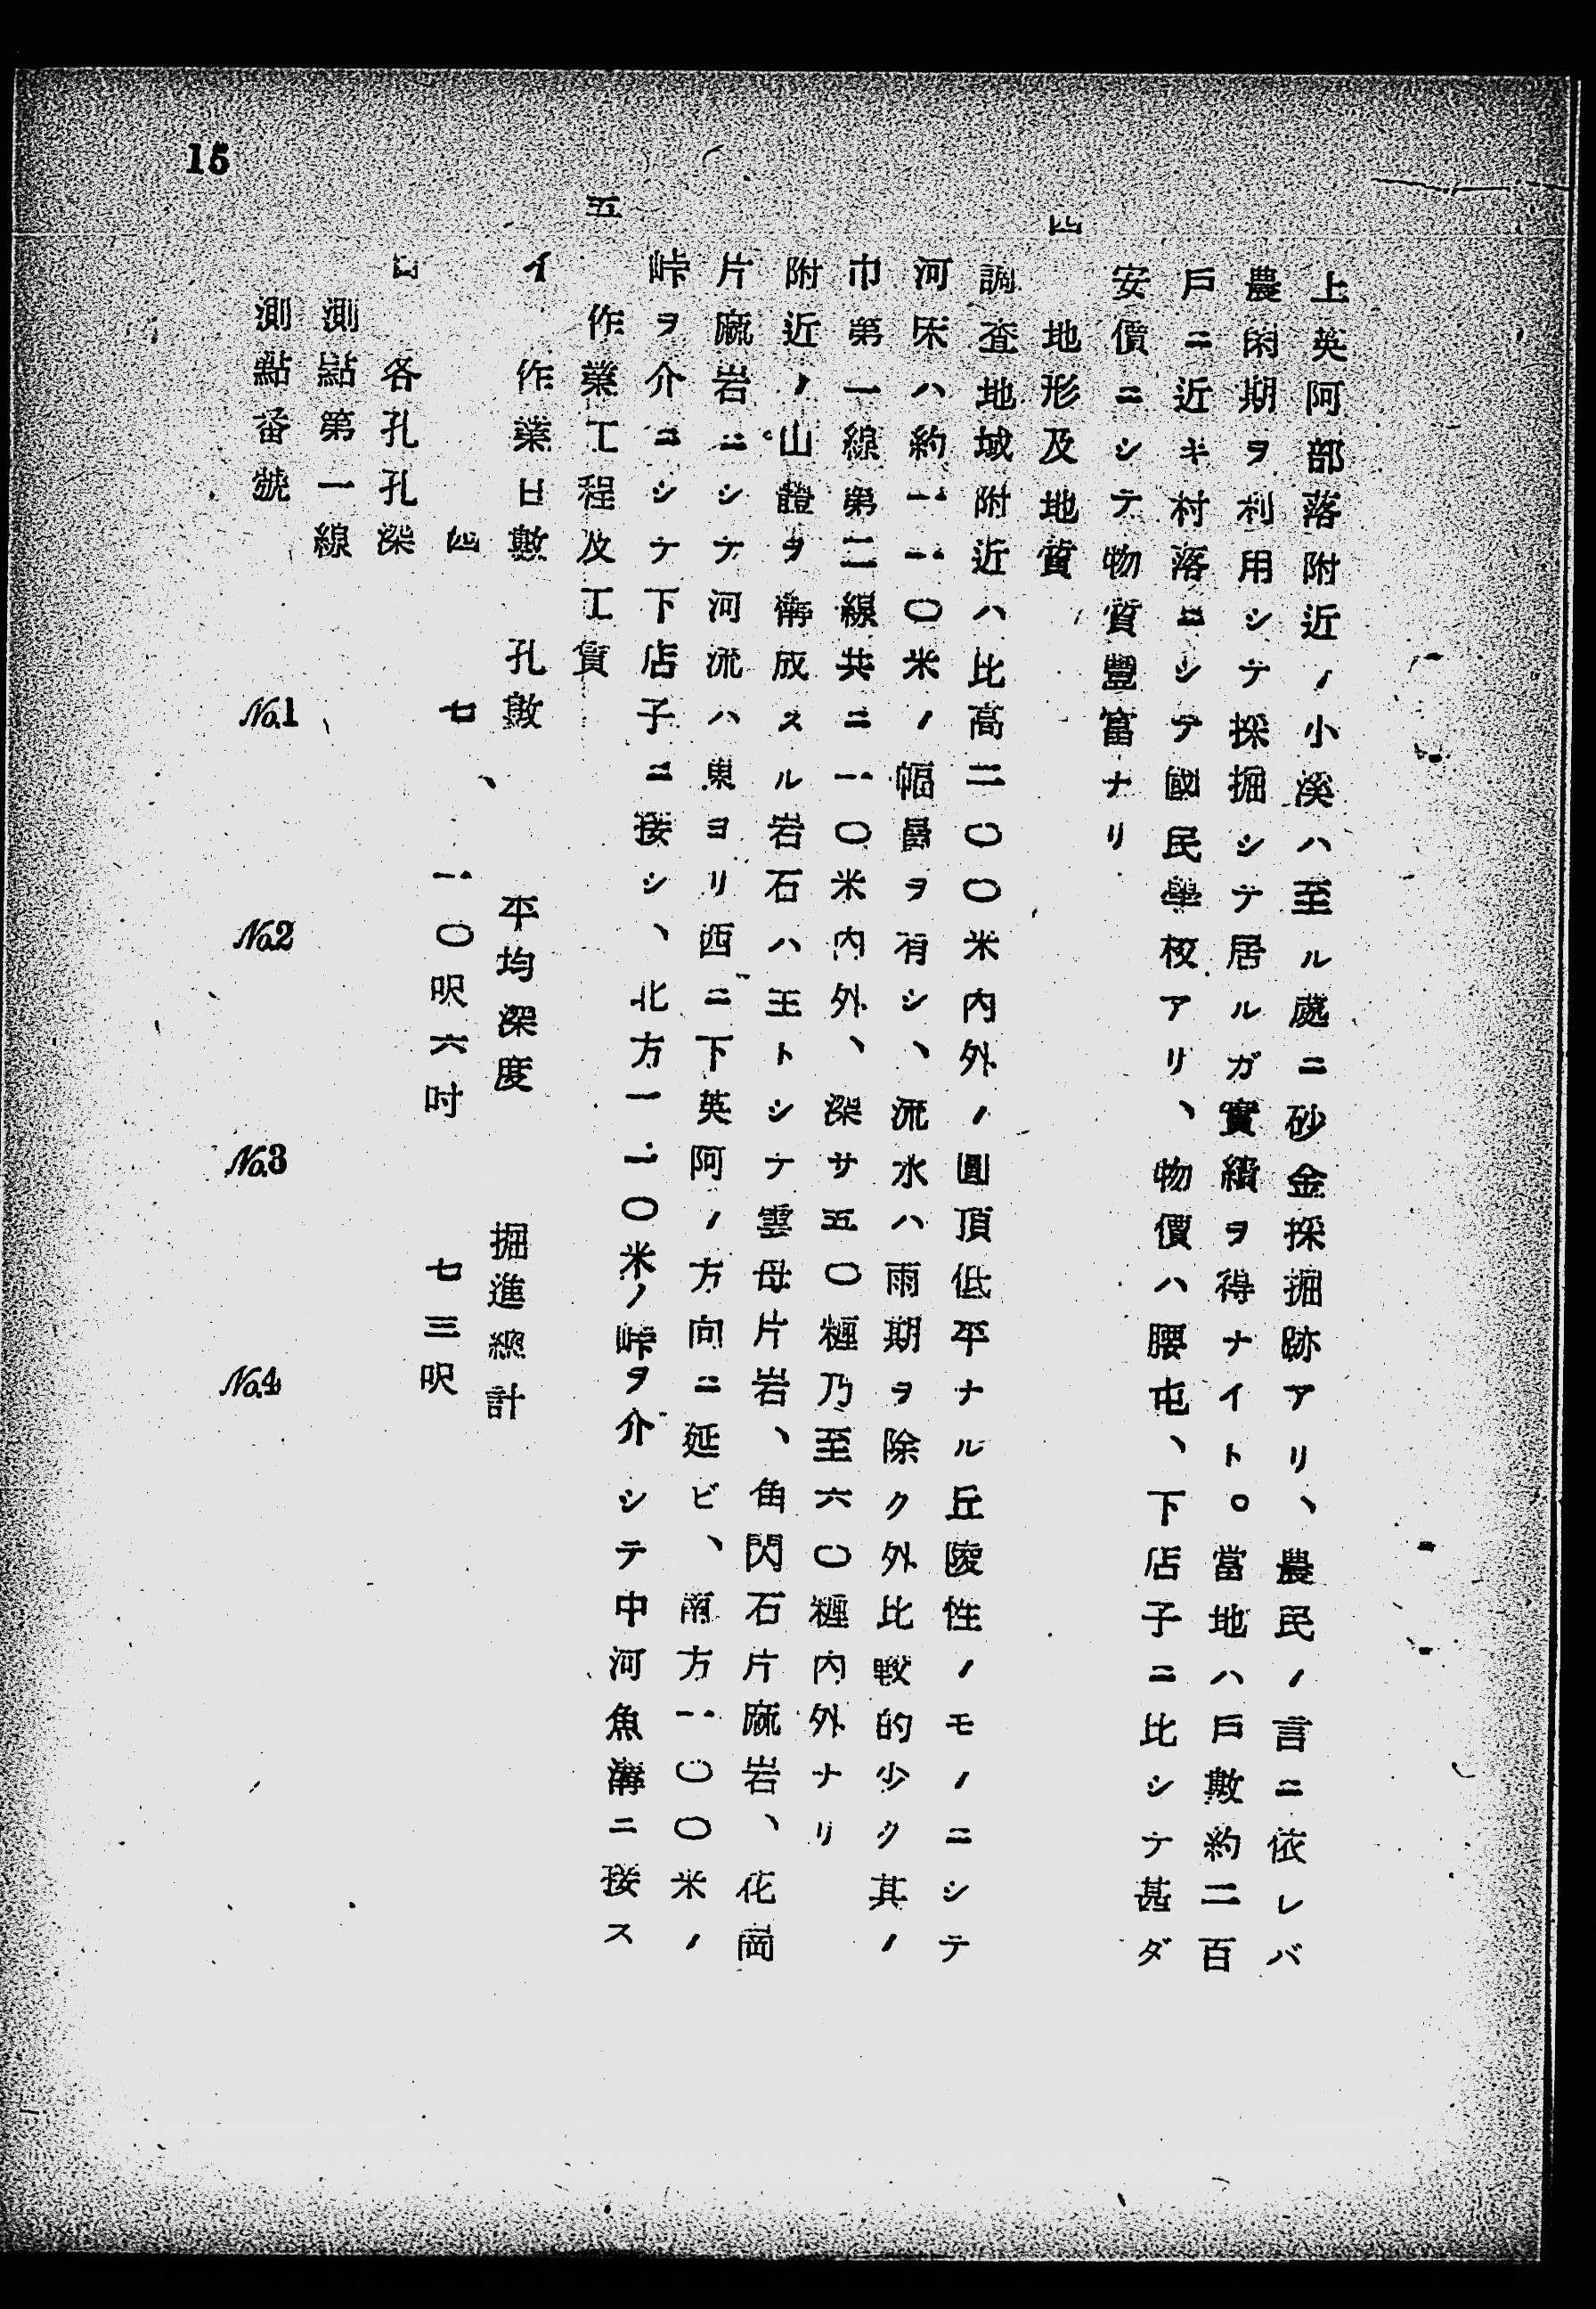 上英阿部落附近ノ小溪ハ至ル處ニ砂金採掘跡アリ、農民ノ言ニ依レバ
農閑期ヲ利用シテ採掘シテ居ルガ實績ヲ得ナイト。當地ハ戶數約二百
戶ニ近キ村落ニシテ國民學校アリ、物價ハ腰屯、下店子ニ比シテ甚ダ
安價ニシテ物資豐富ナリ
四 地形及地質
調査地域附近ハ比高二〇〇米內外ノ圓頂低平ナル丘陵性ノモノニシテ
河床ハ約一一〇米ノ幅員ヲ有シ、流水ハ雨期ヲ除ク外比較的少ク其ノ
巾第一線第二線共ニ一〇米內外、深サ五〇糎乃至六〇糎內外ナリ
附近ノ山體ヲ構成スル岩石ハ主トシテ雲母片岩、角閃石片麻岩、花崗
片麻岩ニシテ河流ハ東ヨリ西ニ下英阿ノ方向ニ延ビ、南方一〇〇米ノ
峠ヲ介ニシテ下店子ニ接シ、北方一一〇米ノ峠ヲ介シテ中河魚溝ニ接ス
五 作業工程及工費
イ 作業日數 孔數 平均深度 掘進總計
四 七、 一〇呎六吋 七三呎
ロ 各孔孔深
測點第一線
測點番號 No.1 No.2 No.3 No.4
15